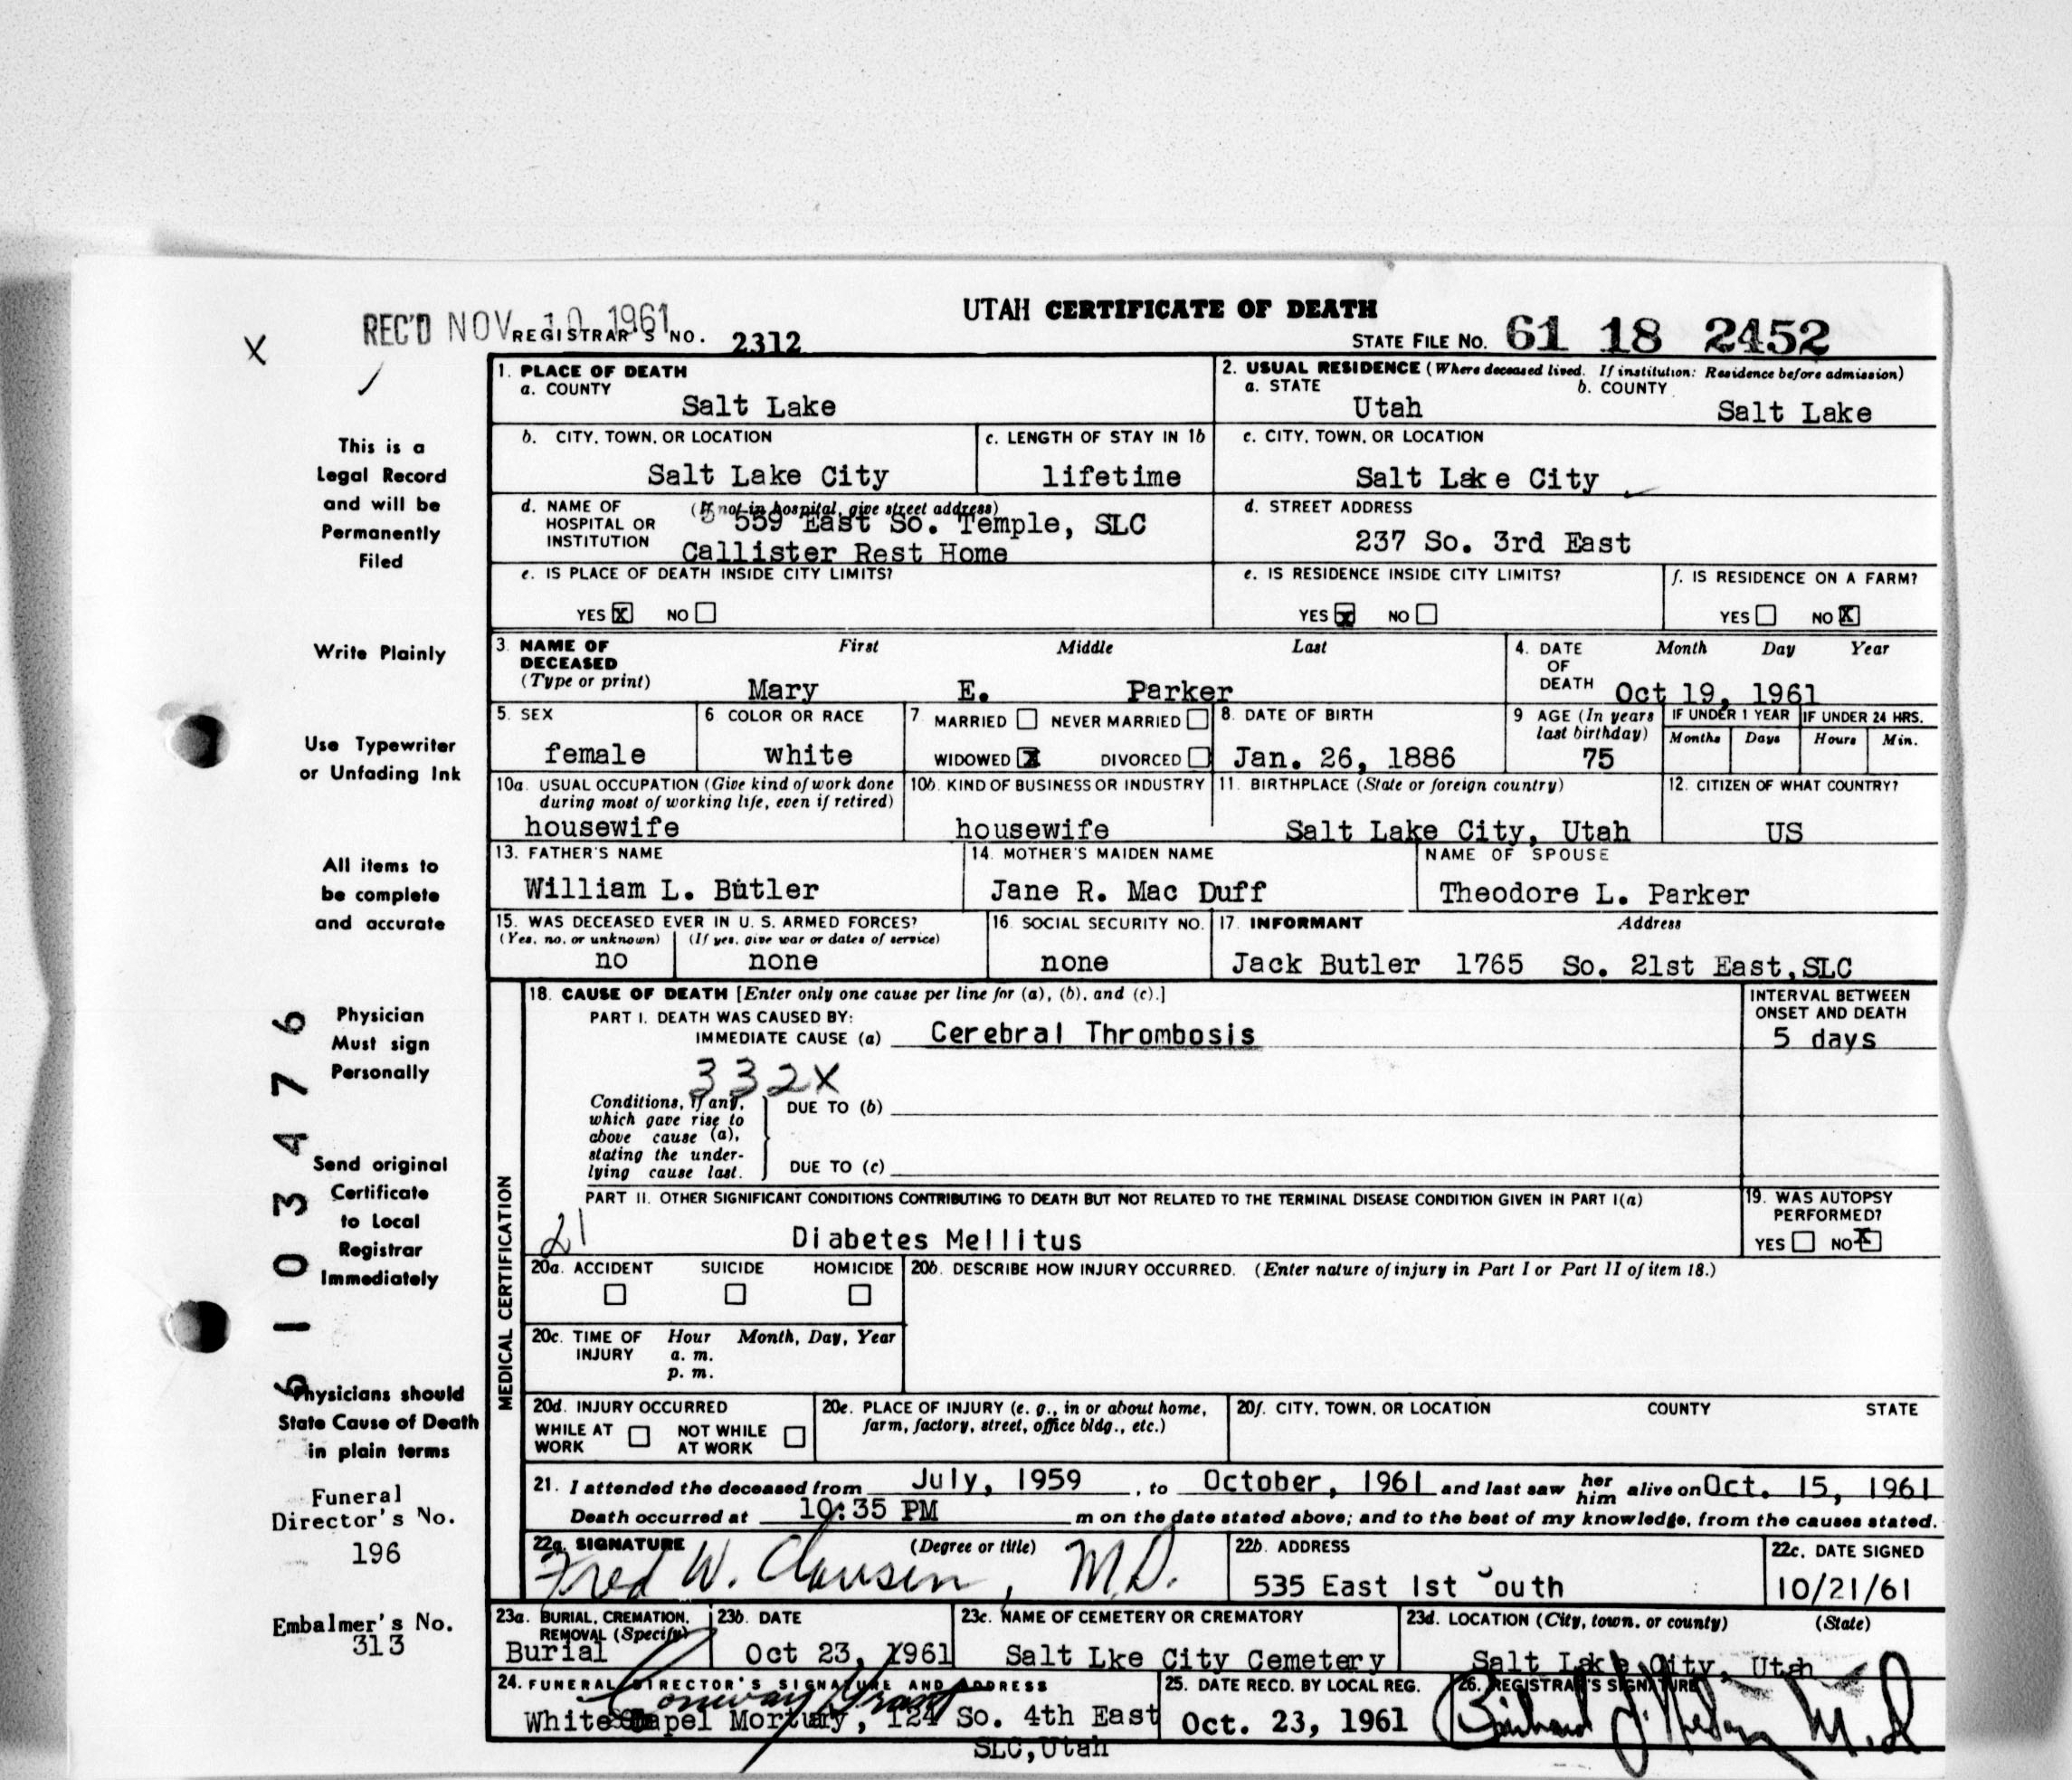 UTAH CERTIFICATE OF DEATH
REC'D NOV 10 1961
REGISTRAR'S NO. 2312
STATE FILE NO. 61 18 2452
X
This is a
Legal Record
and will be
Permanently
Filed
Write Plainly
Use Typewriter
or Unfading Ink
All items to
be complete
and accurate
Physician
Must sign
Personally
Send original
Certificate
to Local
Registrar
Immediately
Physicians should
State Cause of Death
in plain terms
Funeral
Director's No.
196
Embalmer's No.
313
6103476
1. PLACE OF DEATH
a. COUNTY
Salt Lake
2. USUAL RESIDENCE (Where deceased lived. If institution: Residence before admission)
a. STATE b. COUNTY
Utah Salt Lake
b. CITY, TOWN, OR LOCATION
Salt Lake City
c. LENGTH OF STAY IN 1b
lifetime
c. CITY, TOWN, OR LOCATION
Salt Lake City
d. NAME OF HOSPITAL OR INSTITUTION (If not in hospital, give street address)
559 East So. Temple, SLC
Callister Rest Home
d. STREET ADDRESS
237 So. 3rd East
e. IS PLACE OF DEATH INSIDE CITY LIMITS?
YES X NO
e. IS RESIDENCE INSIDE CITY LIMITS?
YES X NO
f. IS RESIDENCE ON A FARM?
YES NO X
3. NAME OF DECEASED (Type or print) First Middle Last
Mary E. Parker
4. DATE OF DEATH Month Day Year
Oct 19, 1961
5. SEX
female
6 COLOR OR RACE
white
7 MARRIED NEVER MARRIED
WIDOWED X DIVORCED
8. DATE OF BIRTH
Jan. 26, 1886
9 AGE (In years last birthday)
75
IF UNDER 1 YEAR IF UNDER 24 HRS.
Months Days Hours Min.
10a. USUAL OCCUPATION (Give kind of work done during most of working life, even if retired)
housewife
10b. KIND OF BUSINESS OR INDUSTRY
housewife
11. BIRTHPLACE (State or foreign country)
Salt Lake City, Utah
12. CITIZEN OF WHAT COUNTRY?
US
13. FATHER'S NAME
William L. Butler
14. MOTHER'S MAIDEN NAME
Jane R. Mac Duff
NAME OF SPOUSE
Theodore L. Parker
15. WAS DECEASED EVER IN U. S. ARMED FORCES?
(Yes, no, or unknown) (If yes, give war or dates of service)
no none
16. SOCIAL SECURITY NO.
none
17. INFORMANT Address
Jack Butler 1765 So. 21st East, SLC
MEDICAL CERTIFICATION
18. CAUSE OF DEATH [Enter only one cause per line for (a), (b), and (c).]
PART I. DEATH WAS CAUSED BY:
IMMEDIATE CAUSE (a) Cerebral Thrombosis
INTERVAL BETWEEN ONSET AND DEATH
5 days
332X
Conditions, if any, which gave rise to above cause (a), stating the underlying cause last.
DUE TO (b)
DUE TO (c)
PART II. OTHER SIGNIFICANT CONDITIONS CONTRIBUTING TO DEATH BUT NOT RELATED TO THE TERMINAL DISEASE CONDITION GIVEN IN PART I(a)
21 Diabetes Mellitus
19. WAS AUTOPSY PERFORMED?
YES NO X
20a. ACCIDENT SUICIDE HOMICIDE
20b. DESCRIBE HOW INJURY OCCURRED. (Enter nature of injury in Part I or Part II of item 18.)
20c. TIME OF INJURY Hour Month, Day, Year
a. m.
p. m.
20d. INJURY OCCURRED
WHILE AT WORK NOT WHILE AT WORK
20e. PLACE OF INJURY (e. g., in or about home, farm, factory, street, office bldg., etc.)
20f. CITY, TOWN, OR LOCATION COUNTY STATE
21. I attended the deceased from July, 1959, to October, 1961 and last saw her him alive on Oct. 15, 1961
Death occurred at 10:35 PM m on the date stated above; and to the best of my knowledge, from the causes stated.
22a. SIGNATURE (Degree or title)
Fred W. Clausen, M.D.
22b. ADDRESS
535 East 1st South
22c. DATE SIGNED
10/21/61
23a. BURIAL, CREMATION, REMOVAL (Specify)
Burial
23b. DATE
Oct 23, 1961
23c. NAME OF CEMETERY OR CREMATORY
Salt Lke City Cemetery
23d. LOCATION (City, town, or county) (State)
Salt Lake City, Utah
24. FUNERAL DIRECTOR'S SIGNATURE AND ADDRESS
White Chapel Mortuary, 124 So. 4th East
SLC, Utah
25. DATE RECD. BY LOCAL REG.
Oct. 23, 1961
26. REGISTRAR'S SIGNATURE
M.D